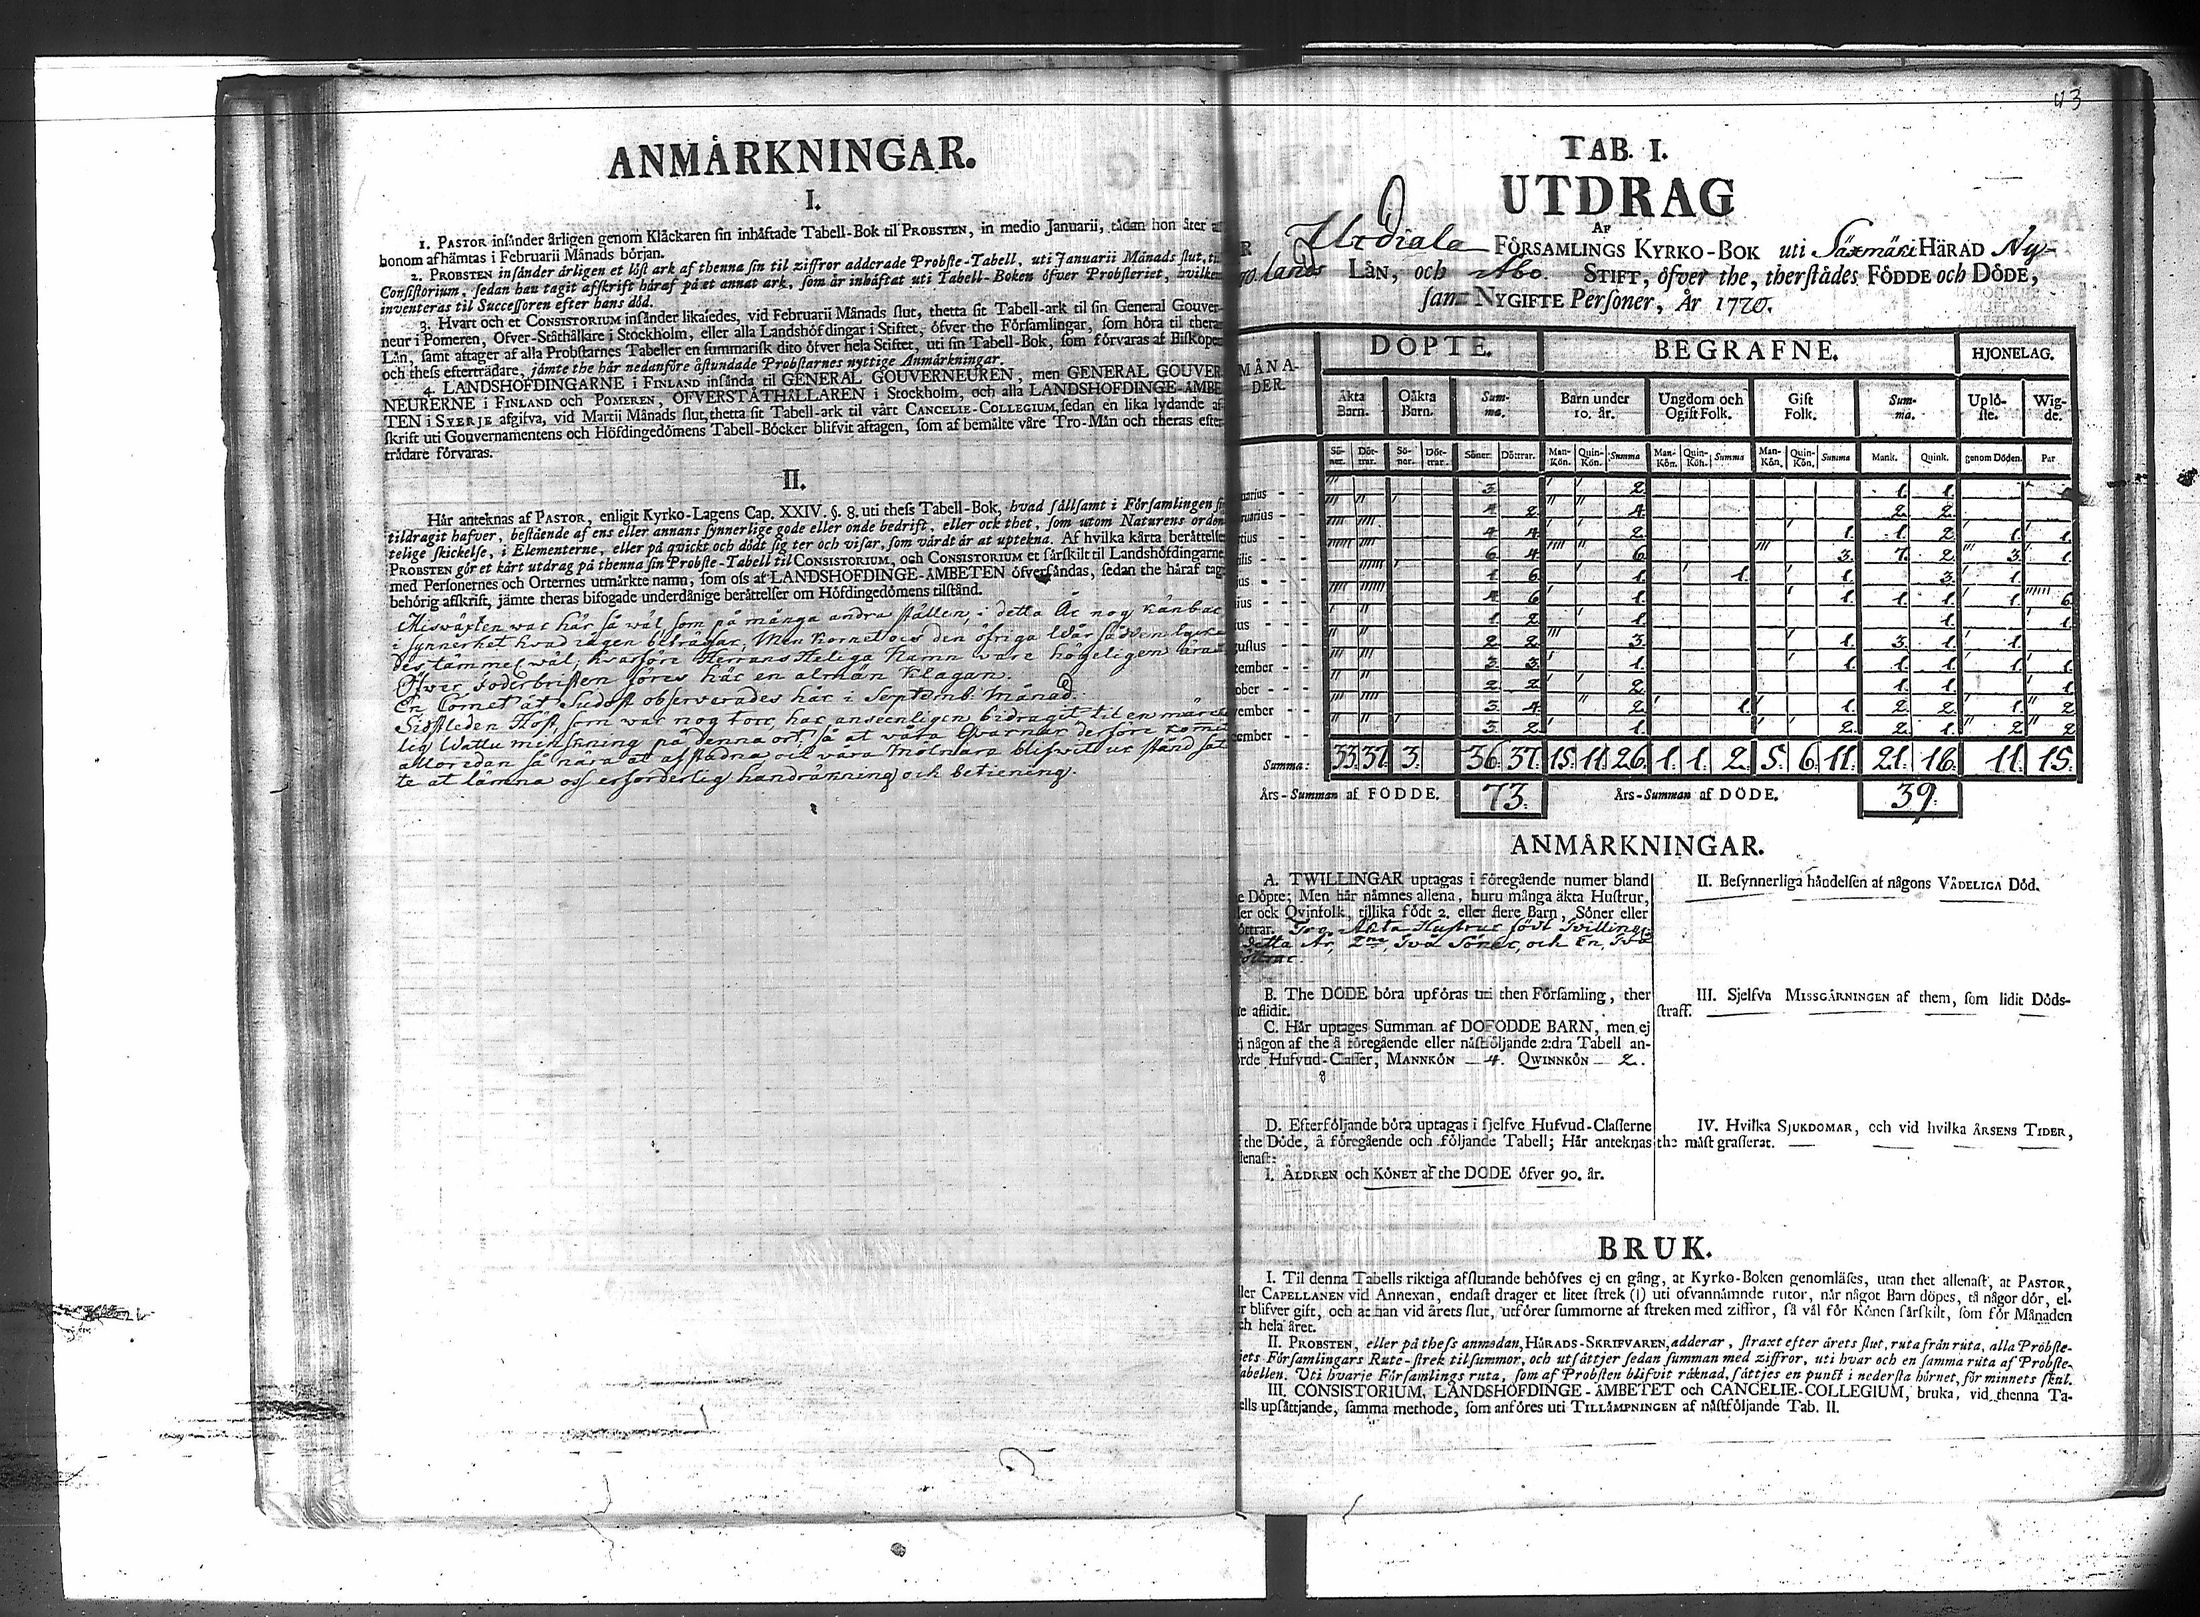 ANMÄRKNINGAR.
I.
1. PASTOR insänder årligen genom Klåckaren sin inhäftade Tabell-Bok til PROBSTEN, in medio Januarii, tådan hon åter af
honom afhämtas i Februarii Månads början.
2. PROBSTEN insänder årligen et löst ark af thenna sin til ziffror adderade Probste-Tabell, uti Januarii Månads slut, til
Consistorium, sedan han tagit afskrift häraf på et annat ark, som är inhäftat uti Tabell-Boken öfver Probsteriet, hvilken
inventeras til Successoren efter hans död.
3. Hvart och et CONSISTORIUM insänder likaledes, vid Februarii Månads slut, thetta sit Tabell-ark til sin General Gouver-
neur i Pomeren, Öfver-Ståthållare i Stockholm, eller alla Landshöfdingar i Stiftet, öfver the Församlingar, som höra til theras
Län, samt aftager af alla Probstarnes Tabeller en summarisk dito öfver hela Stiftet, uti sin Tabell-Bok, som förvaras af Biskopen
och thess efterträdare, jämte the här nedanföre åstundade Probstarnes nyttige Anmärkningar.
4. LANDSHÖFDINGARNE i FINLAND insända til GENERAL GOUVERNEUREN, men GENERAL GOUVER-
NEURERNE i FINLAND och POMEREN, ÖFVERSTÅTHÅLLAREN i Stockholm, och alla LANDSHÖFDINGE-ÄMBE-
TEN i SVERJE afgifva, vid Martii Månads slut, thetta sit Tabell-ark til vårt CANCELIE-COLLEGIUM, sedan en lika lydande af-
skrift uti Gouvernamentens och Höfdingedömens Tabell-Böcker blifvit aftagen, som af bemälte våre Tro-Män och theras efter-
trädare förvaras.
II.
Här anteknas af PASTOR, enligit Kyrko-Lagens Cap. XXIV. §. 8. uti thess Tabell-Bok, hvad sällsamt i Församlingen sig
tildragit hafver, bestående af ens eller annans synnerlige gode eller onde bedrift, eller ock thet, som utom Naturens orden-
telige skickelse, i Elementerne, eller på quickt och dödt sig ter och visar, som värdt är at uptekna. Af hvilka kårta berättelser
PROBSTEN gör et kårt utdrag på thenna sin Probste-Tabell til CONSISTORIUM, och CONSISTORIUM et särskilt til Landshöfdingarne
med Personernes och Orternes utmärkte namn, som oss af LANDSHÖFDINGE-ÄMBETEN öfversändas, sedan the häraf tagit
behörig afskrift, jämte theras bifogade underdånige berättelser om Höfdingedömens tilstånd.
Misväxten war här så wäl som på många andra ställen, i detta År nog kånbar
i synnerhet hvad rågen beträgar, Men Kornet ocs den öfriga Wår säden lycka
des tämmel. wäl, hvarföre Herrans Heliga Namn vare högeligen ärat
Öfver foderbristen föres här en almän Klagan.
En Comet åt Sudost observerades här i Septemb. Månad.
Sidstleden Höst, som war nog torr, har anseenligen bidragit til en märcke
lig Wattu minskning på denna ort, så at våra Qvarnar derföre komit
alloredan så nära at afstadna ock våra Mölnare blifwit ur stånd sat
te at lämna oss erforderlig handräkning och betiening.
43
TAB. I.
UTDRAG
AF
Urdiala FÖRSAMLINGS KYRKO-BOK uti Säxmäki HÄRAD Ny-
lands LÄN, och Åbo STIFT, öfver the, therstädes FÖDDE och DÖDE,
samt NYGIFTE Personer, År 1770.
MÅNA-DER. DÖPTE. BEGRAFNE. HJONELAG.
Äkta Barn. Oäkta Barn. Sum-ma. Barn under 10. år. Ungdom och Ogift Folk. Gift Folk. Sum-ma. Uplö-ste. Wig-de.
Sö-ner. Döt-trar. Sö-ner. Döt-trar. Söner. Döttrar. Man-Kön. Quin-Kön. Summa Man-Kön. Quin-Kön. Summa Man-Kön. Quin-Kön. Summa Mank. Quink. genom Döden. Par
nuarius - - 3. 2. 1. 1.
ruarius - - 4 2. 4. 2. 2.
rtius - - 4 4. 2. 1. 1. 2. 1. 1.
rilis - - 6 4. 6. 3. 7. 2. 3. 1.
jus - - 1 6. 1. 1. 1. 3. 1.
nius - - 4 6. 1. 1. 1. 1. 1. 6.
ius - - 1. 2. 1. 1. 1.
gustus - - 2 2. 3. 1. 3. 1. 1.
tember - - 3. 3. 1. 1. 1. 1. 1. 1.
tober - - - 2. 2. 2. 1. 1. 1.
vember - - 3. 4. 2. 1. 1. 2. 2. 1. 2
cember - - 3 2. 1. 2. 2. 1. 2 2.
Summa: 33. 37. 3. 36. 37. 15. 11. 26. 1. 1. 2. 5. 6. 11. 21. 18. 11. 15.
Års-Summan af FÖDDE. 73. Års-Summan af DÖDE. 39.
ANMÄRKNINGAR.
A. TWILLINGAR uptagas i föregående numer bland
e Döpte; Men här nämnes allena, huru många äkta Hustrur,
ler ock Qvinfolk, tillika födt 2. eller flere Barn, Söner eller
öttrar. Tre Äkta Hustrur födt Tvillingar
detta År, 2ne, två Söner, och En, två
döttrar.
B. The DÖDE böra upföras uti then Församling, ther
te aflidit.
C. Här uptages Summan af DÖFÖDDE BARN, men ej
i någon af the å föregående eller nästföljande 2:dra Tabell an-
örde Hufvud-Classer, MANNKÖN — 4. QWINNKÖN — 2.
D. Efterföljande böra uptagas i sjelfve Hufvud-Classerne
f the Döde, å föregående och följande Tabell; Här anteknas
lenast:
I. ÅLDREN och KÖNET af the DÖDE öfver 90. år.
II. Besynnerliga händelsen af någons VÅDELIGA Död.
III. Sjelfva MISSGÄRNINGEN af them, som lidit Döds-
straff.
IV. Hvilka SJUKDOMAR, och vid hvilka ÅRSENS TIDER,
the mäst grasserat.
BRUK.
I. Til denna Tabells riktiga afslutande behöfves ej en gång, at Kyrko-Boken genomläses, utan thet allenast, at PASTOR,
ller CAPELLANEN vid Annexan, endast drager et litet strek (|) uti ofvannämnde rutor, når något Barn döpes, tå någor dör, el-
r blifver gift, och at han vid årets slut, utförer summorne af streken med ziffror, så väl för Könen särskilt, som för Månaden
ch hela året.
II. PROBSTEN, eller på thess anmodan, HÄRADS-SKRIFVAREN, adderar, straxt efter årets slut, ruta från ruta, alla Probste-
jets Församlingars Rute-strek tilsummor, och utsättjer sedan summan med ziffror, uti hvar och en samma ruta af Probste-
abellen. Uti hvarje Församlings ruta, som af Probsten blifvit räknad, sättjes en punct i nedersta hörnet, för minnets skul.
III. CONSISTORIUM, LANDSHÖFDINGE-ÄMBETET och CANCELIE-COLLEGIUM, bruka, vid thenna Ta-
ells upsättjande, samma methode, som anföres uti TILLÄMPNINGEN af nästföljande Tab. II.